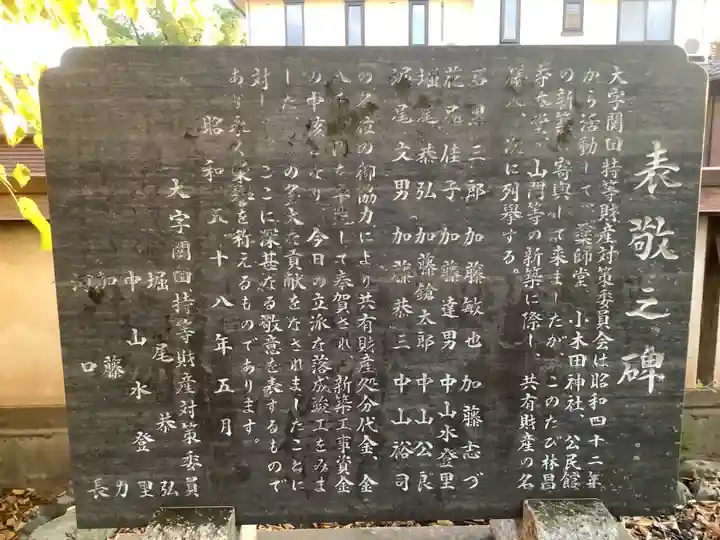 表敬之碑
大字関田特等財産対策委員会は昭和四十二年
から活動して、薬師堂、小木田神社、公民館
の新築に寄与して来ましたが、このたび林昌
寺本堂、山門等の新築に際し、共有財産の名
義人、次に列挙する。
三郎 加藤敏也 加藤志づ
花尾佳子 加藤達男 中山水登里
堀尾恭弘 加藤鎗太郎 中山公良
尾文男 加藤恭三 中山裕司
の各位の御協力により共有財産処分代金、金
八千円を奉賀され、新築工事資金
の中核となり、今日の立派な落成竣工をみま
した。この多大な貢献をなされましたことに
対し、ここに深甚なる敬意を表するもので
あり永く栄誉を称えるものであります。
昭和五十八年五月
大字関田特等財産対策委員
堀尾恭弘
中山水登里
加藤力
口長